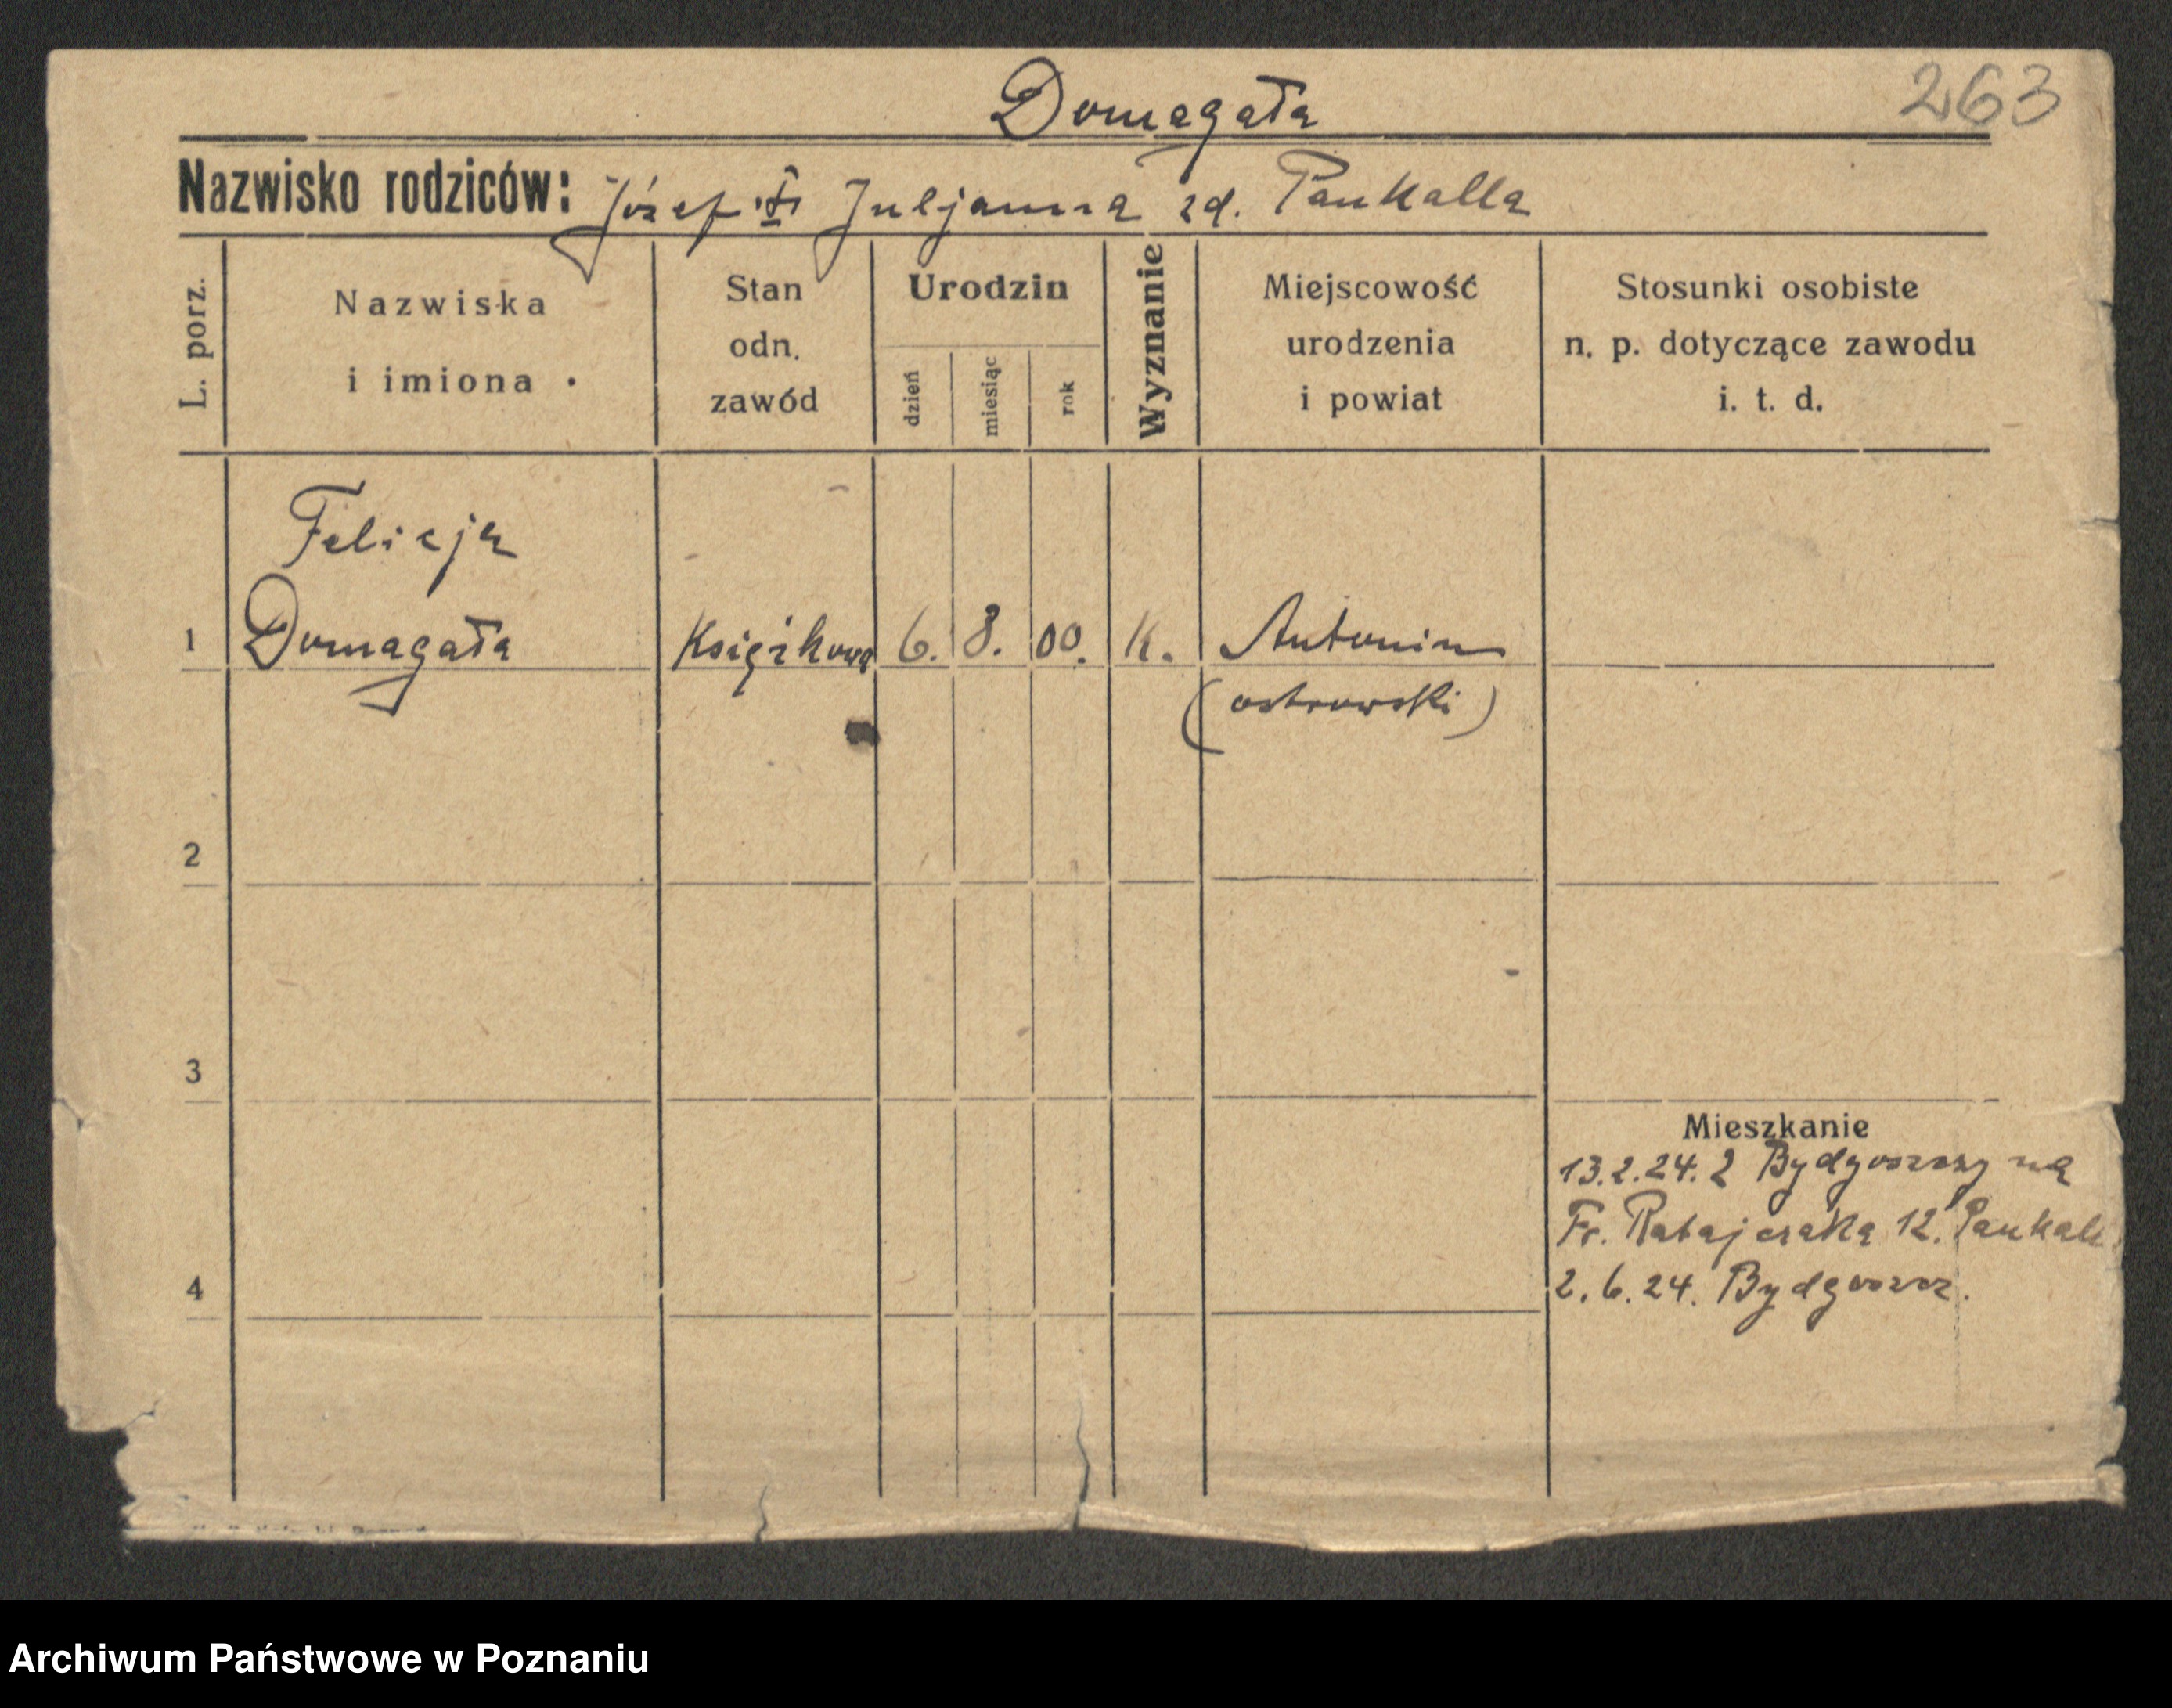 Domagała
263
Nazwisko rodziców: Józef i Juljanna zd. Paukalla
L. porz.
Nazwiska
i imiona
Stan
odn.
zawód
Urodzin
dzień
miesiąc
rok
Wyznanie
Miejscowość
urodzenia
i powiat
Stosunki osobiste
n. p. dotyczące zawodu
i. t. d.
Felicja
1 Domagała Książkowa 6. 8. 00. K. Antonin
(ostrowski)
2
3
Mieszkanie
13.2.24. z Bydgoszczy na
Fr. Ratajczaka 12. Paukall
4 2.6.24. Bydgoszcz.
Archiwum Państwowe w Poznaniu